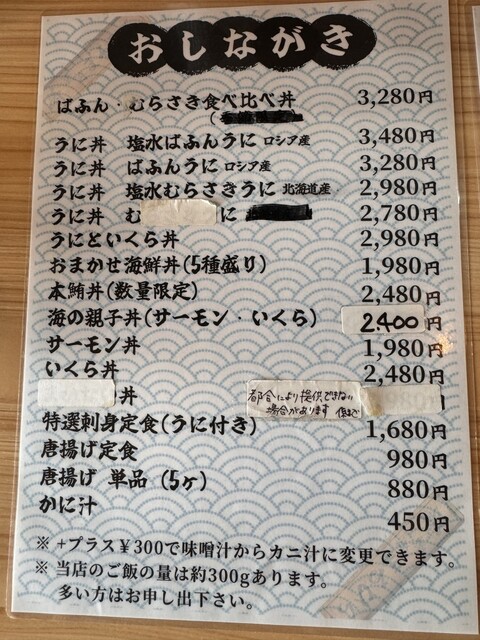 おしながき
ばふん・むらさき食べ比べ丼 3,280円
うに丼 塩水ばふんうに ロシア産 3,480円
うに丼 ばふんうに ロシア産 3,280円
うに丼 塩水むらさきうに 北海道産 2,980円
うに丼 む に 2,780円
うにといくら丼 2,980円
おまかせ海鮮丼(5種盛り) 1,980円
本鮪丼(数量限定) 2,480円
海の親子丼(サーモン・いくら) 2,400円
サーモン丼 1,980円
いくら丼 2,480円
丼
都合により提供できない
場合があります
特選刺身定食(うに付き) 1,680円
唐揚げ定食 980円
唐揚げ 単品 (5ヶ) 880円
かに汁 450円
※ +プラス¥300で味噌汁からカニ汁に変更できます。
※ 当店のご飯の量は約300gあります。
多い方はお申し出下さい。